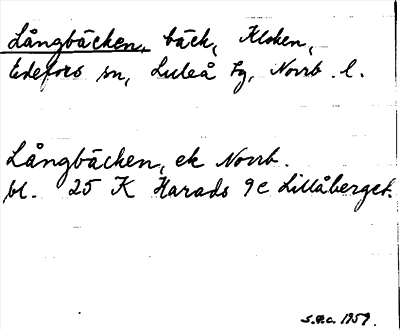 Långbäcken, bäck, Kloken,
Edefors sn, Luleå tg, Norrb. l.
Långbäcken, ek Norrb.
bl. 25 K Harads 9c Lillåberget.
S.O.C. 1959.